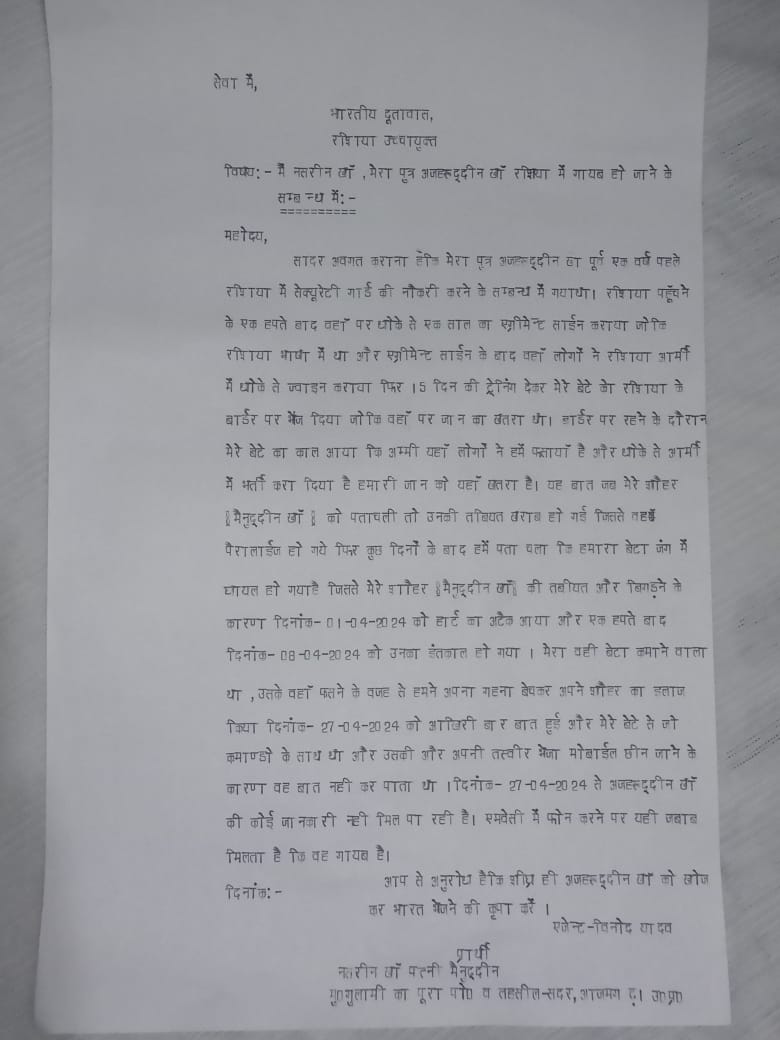 सेवा में,
भारतीय दूतावास,
रशिया उच्चायुक्त
विषय:- मैं नसरीन खाँ ,मेरा पुत्र अजहरूद्दीन खाँ रशिया में गायब हो जाने के
सम्ब न्ध में:-
==========
महोदय,
सादर अवगत कराना हैकि मेरा पुत्र अजहरूद्दीन खा पूर्व एक वर्ष पहले
रशिया में सेक्यूरेटी गार्ड की नौकरी करने के सम्बन्ध में गयाथा। रशिया पहूँचने
के एक हपते बाद वहाँ पर धोके से एक साल का एग्रीमेन्ट साईन कराया जोकि
रशिया भाषा में था और एग्रीमेन्ट साईन के बाद वहाँ लोगों ने रशिया आर्मी
में धोके से ज्वाइन कराया फिर 15 दिन की ट्रेनिंग देकर मेरे बेटे को रशिया के
बार्डर पर भेज दिया जोकि वहाँ पर जान का खतरा था। बार्डर पर रहने के दौरान
मेरे बेटे का काल आया कि अम्मी यहाँ लोगों ने हमें फसाया है और धोके से आर्मी
में भर्ती करा दिया है हमारी जान को यहाँ खतरा है। यह बात जब मेरे शौहर
मैनुद्दीन खाँ को पताचली तो उनकी तबियत खराब हो गई जिससे वह
पैरालाईज हो गये फिर कुछ दिनों के बाद हमें पता चला कि हमारा बेटा जंग में
घायल हो गयाहै जिससे मेरे शौहर मैनुद्दीन खाँ की तबीयत और बिगड़ने के
कारण दिनांक- 01-04-2024 को हार्ट का अटैक आया और एक हपते बाद
दिनांक- 08-04-2024 को उनका इंतकाल हो गया । मेरा वही बेटा कमाने वाला
था ,उसके वहाँ फसने के वजह से हमने अपना गहना बेचकर अपने शौहर का इलाज
किया दिनांक- 27-04-2024 को आखिरी बार बात हुई और मेरे बेटे से जो
कमाण्डो के साथ था और उसकी और अपनी तस्वीर भेजा मोबाईल छीन जाने के
कारण वह बात नही कर पाता था ।दिनांक- 27-04-2024 से अजहरूद्दीन खाँ
की कोई जानकारी नही मिल पा रही है। एमवेसी में फोन करने पर यही जबाब
मिलता है कि वह गायब है।
आप से अनुरोध हैकि शीघ्र ही अजहरूद्दीन खा को खोज
दिनांक:-
कर भारत भेजने की कृपा करें ।
एजेन्ट-विनोद यादव
प्रार्थी
नसरीन खाँ पत्नी मैनुद्दीन
मु0गुलामी का पूरा पो0 व तहसील-सदर, आजमगढ़। उ0प्र0